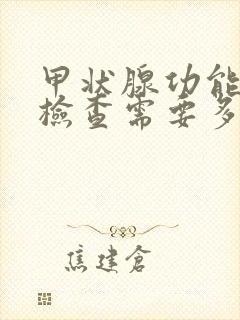 甲状腺功能
檢查需要多
焦建倉